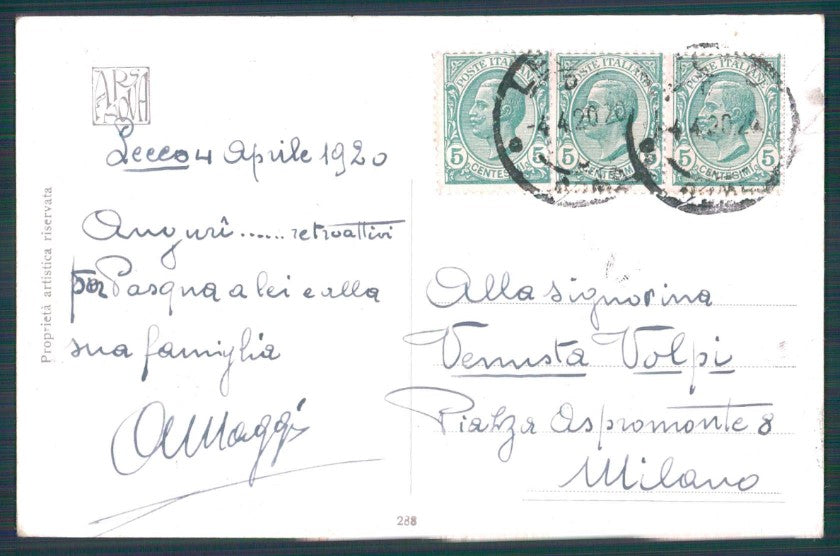 ARS
NOVA
Lecco 4 Aprile 1920
Augurî...... retroattivi
per Pasqua a lei e alla
sua famiglia
AMaggi
Proprietà artistica riservata
288
POSTE ITALIANE
5 CENTESIMI 5
POSTE ITALIANE
5 CENTESIMI 5
POSTE ITALIANE
5 CENTESIMI 5
-4.4.20.20
ROMA
4.4.20.2
ROMA
Alla signorina
Venusta Volpi
Piazza Aspromonte 8
Milano